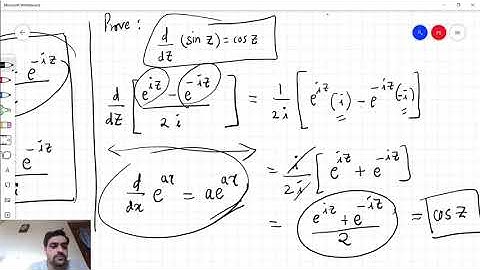 Microsoft Whiteboard
Prove : d/dz (sin z) = cos z
e^{-iz}
e^{-iz}
d/dz [ (e^{iz} - e^{-iz}) / 2i ] = 1/2i [ e^{iz} (i) - e^{-iz} (-i) ]
= i/2i [ e^{iz} + e^{-iz} ]
d/dx e^{ax} = a e^{ax}
= (e^{iz} + e^{-iz}) / 2 = cos z